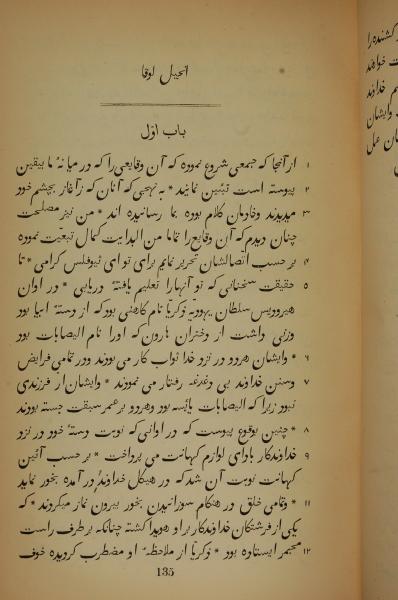 انجیل لوقا
باب اوّل
۱ از آنجا که جمعی شروع نموده که آن وقایعی را که در میانهٔ ما بیقین
۲ پیوسته است تبئین نمایند * به نهجی که آنان که ز آغاز بچشم خود
۳ میدیدند وخادمان کلام بوده بما رسانیده اند * من نیز مصلحت
چنان دیدم که آن وقایع را تماما من البدایت کمال تبعیّت نموده
۴ بر حسب اتّصالشان تحریر نمایم برای تو ای ثیوفلس کرامی * تا
۵ حقیقت سخنانی که تو آنها را تعلیم یافتهٔ دریابی * در اوان
هیرودیس سلطان یهودیّه زکریّا نام کاهنی بود که از دستهٔ ابیا بود
وزنی داشت از دختران هارون که اورا نام الیصابات بود
۶ * وایشان هردو در نزد خدا ثواب کار می بودند ودر تمامی فرایض
۷ وسنن خداوند بی دغدغه رفتار می نمودند * وایشان را فرزندی
نبود زیرا که الیصابات یائسه بود وهردو بر عمر سبقت جسته بودند
۸ * چنین بوقوع پیوست که در اوانی که نوبت دستهٔ خود در نزد
۹ خداوندکار بادای لوازم کهانت می پرداخت * بر حسب آئین
کهانت نوبت آن شد که در هیکل خداوند در آمده بخور نماید
۱۱ * وتمامی خلق در هنکام سوزانیدن بخور بیرون نماز میکردند * که
یکی از فرشتکان خداوندکار بر او هویدا کشته چنانکه بر طرف راست
۱۲ مجمر ایستاده بود * زکریّا از ملاحظهٔ او مضطرب کردیده خوف
135